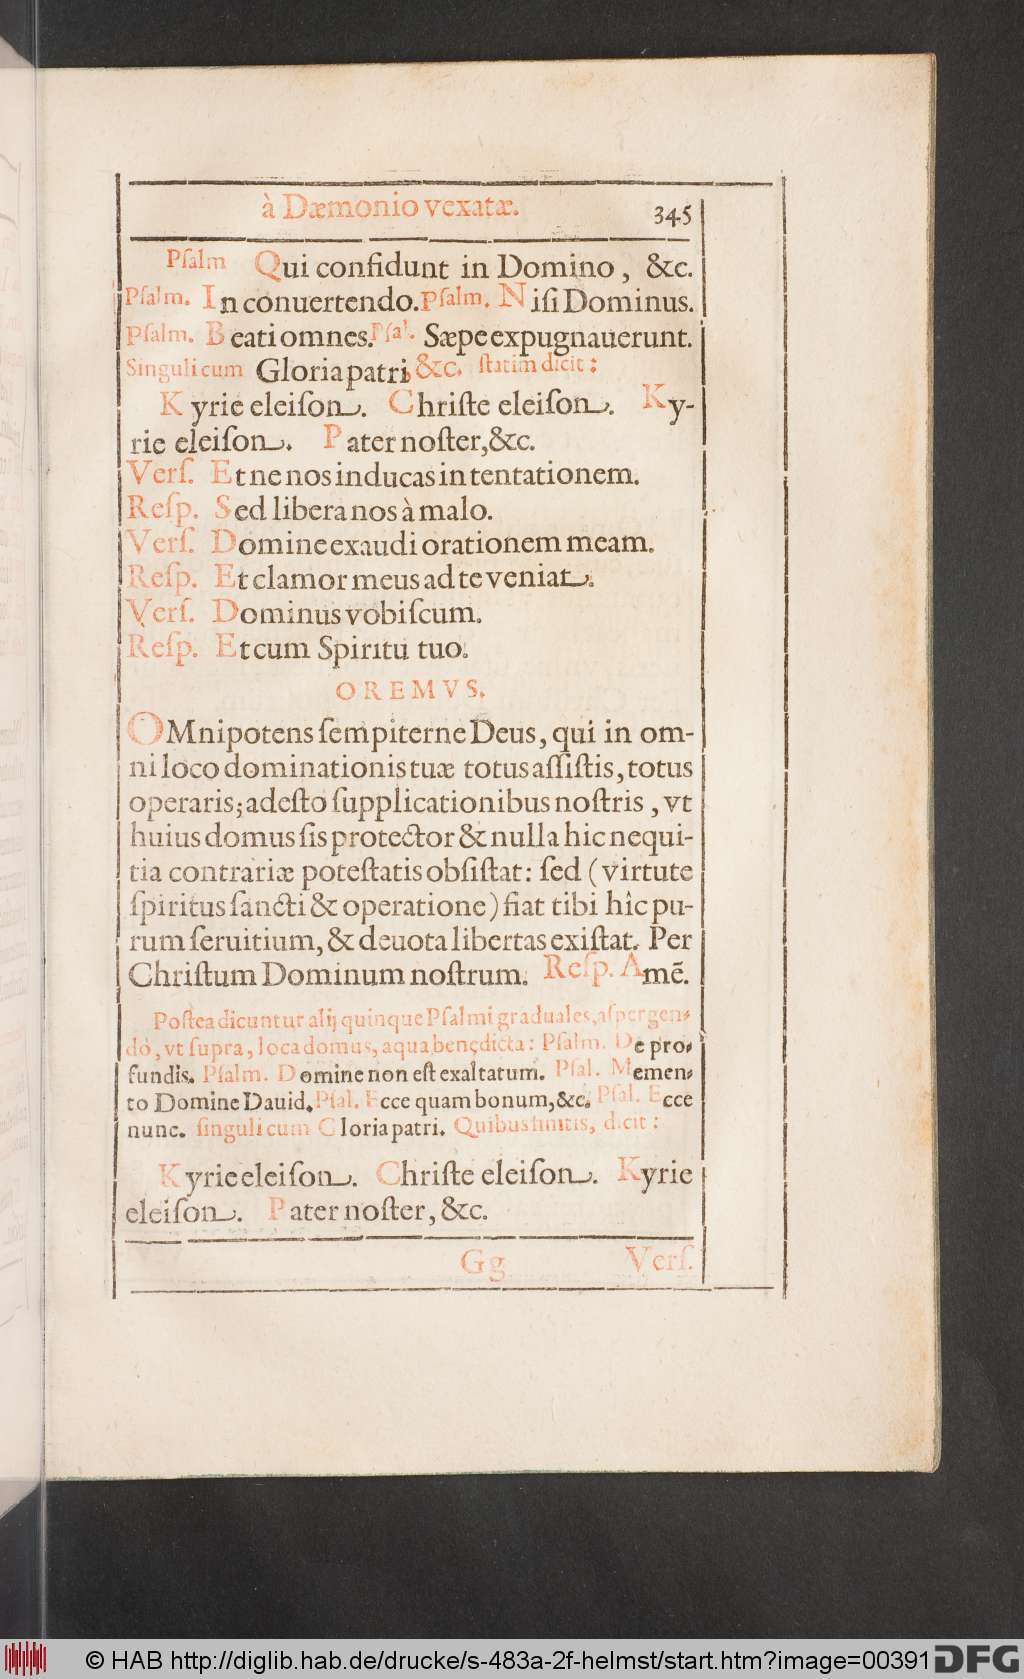 à Dæmonio vexatæ. 345
Pſalm Qui confidunt in Domino, &c.
Pſalm. In conuertendo. Pſalm. Niſi Dominus.
Pſalm. Beati omnes. Pſal. Sæpe expugnauerunt.
Singuli cum Gloria patri, &c. ſtatim dicit:
Kyrie eleiſon. Chriſte eleiſon. Ky-
rie eleiſon. Pater noſter, &c.
Verſ. Et ne nos inducas in tentationem.
Reſp. Sed libera nos à malo.
Verſ. Domine exaudi orationem meam.
Reſp. Et clamor meus ad te veniat.
Verſ. Dominus vobiſcum.
Reſp. Et cum Spiritu tuo.
OREMVS.
OMnipotens ſempiterne Deus, qui in om-
ni loco dominationis tuæ totus aſſiſtis, totus
operaris; adeſto ſupplicationibus noſtris, vt
huius domus ſis protector & nulla hic nequi-
tia contrariæ poteſtatis obſiſtat: ſed (virtute
ſpiritus ſancti & operatione) fiat tibi hîc pu-
rum ſeruitium, & deuota libertas exiſtat. Per
Chriſtum Dominum noſtrum. Reſp. Amẽ.
Poſtea dicuntur alij quinque Pſalmi graduales, aſpergen-
do, vt ſupra, loca domus, aqua benedicta: Pſalm. De pro-
fundis. Pſalm. Domine non eſt exaltatum. Pſal. Memen-
to Domine Dauid. Pſal. Ecce quam bonum, &c. Pſal. Ecce
nunc. ſinguli cum Gloria patri. Quibus finitis, dicit:
Kyrie eleiſon. Chriſte eleiſon. Kyrie
eleiſon. Pater noſter, &c.
Gg Verſ.
© HAB http://diglib.hab.de/drucke/s-483a-2f-helmst/start.htm?image=00391 DFG